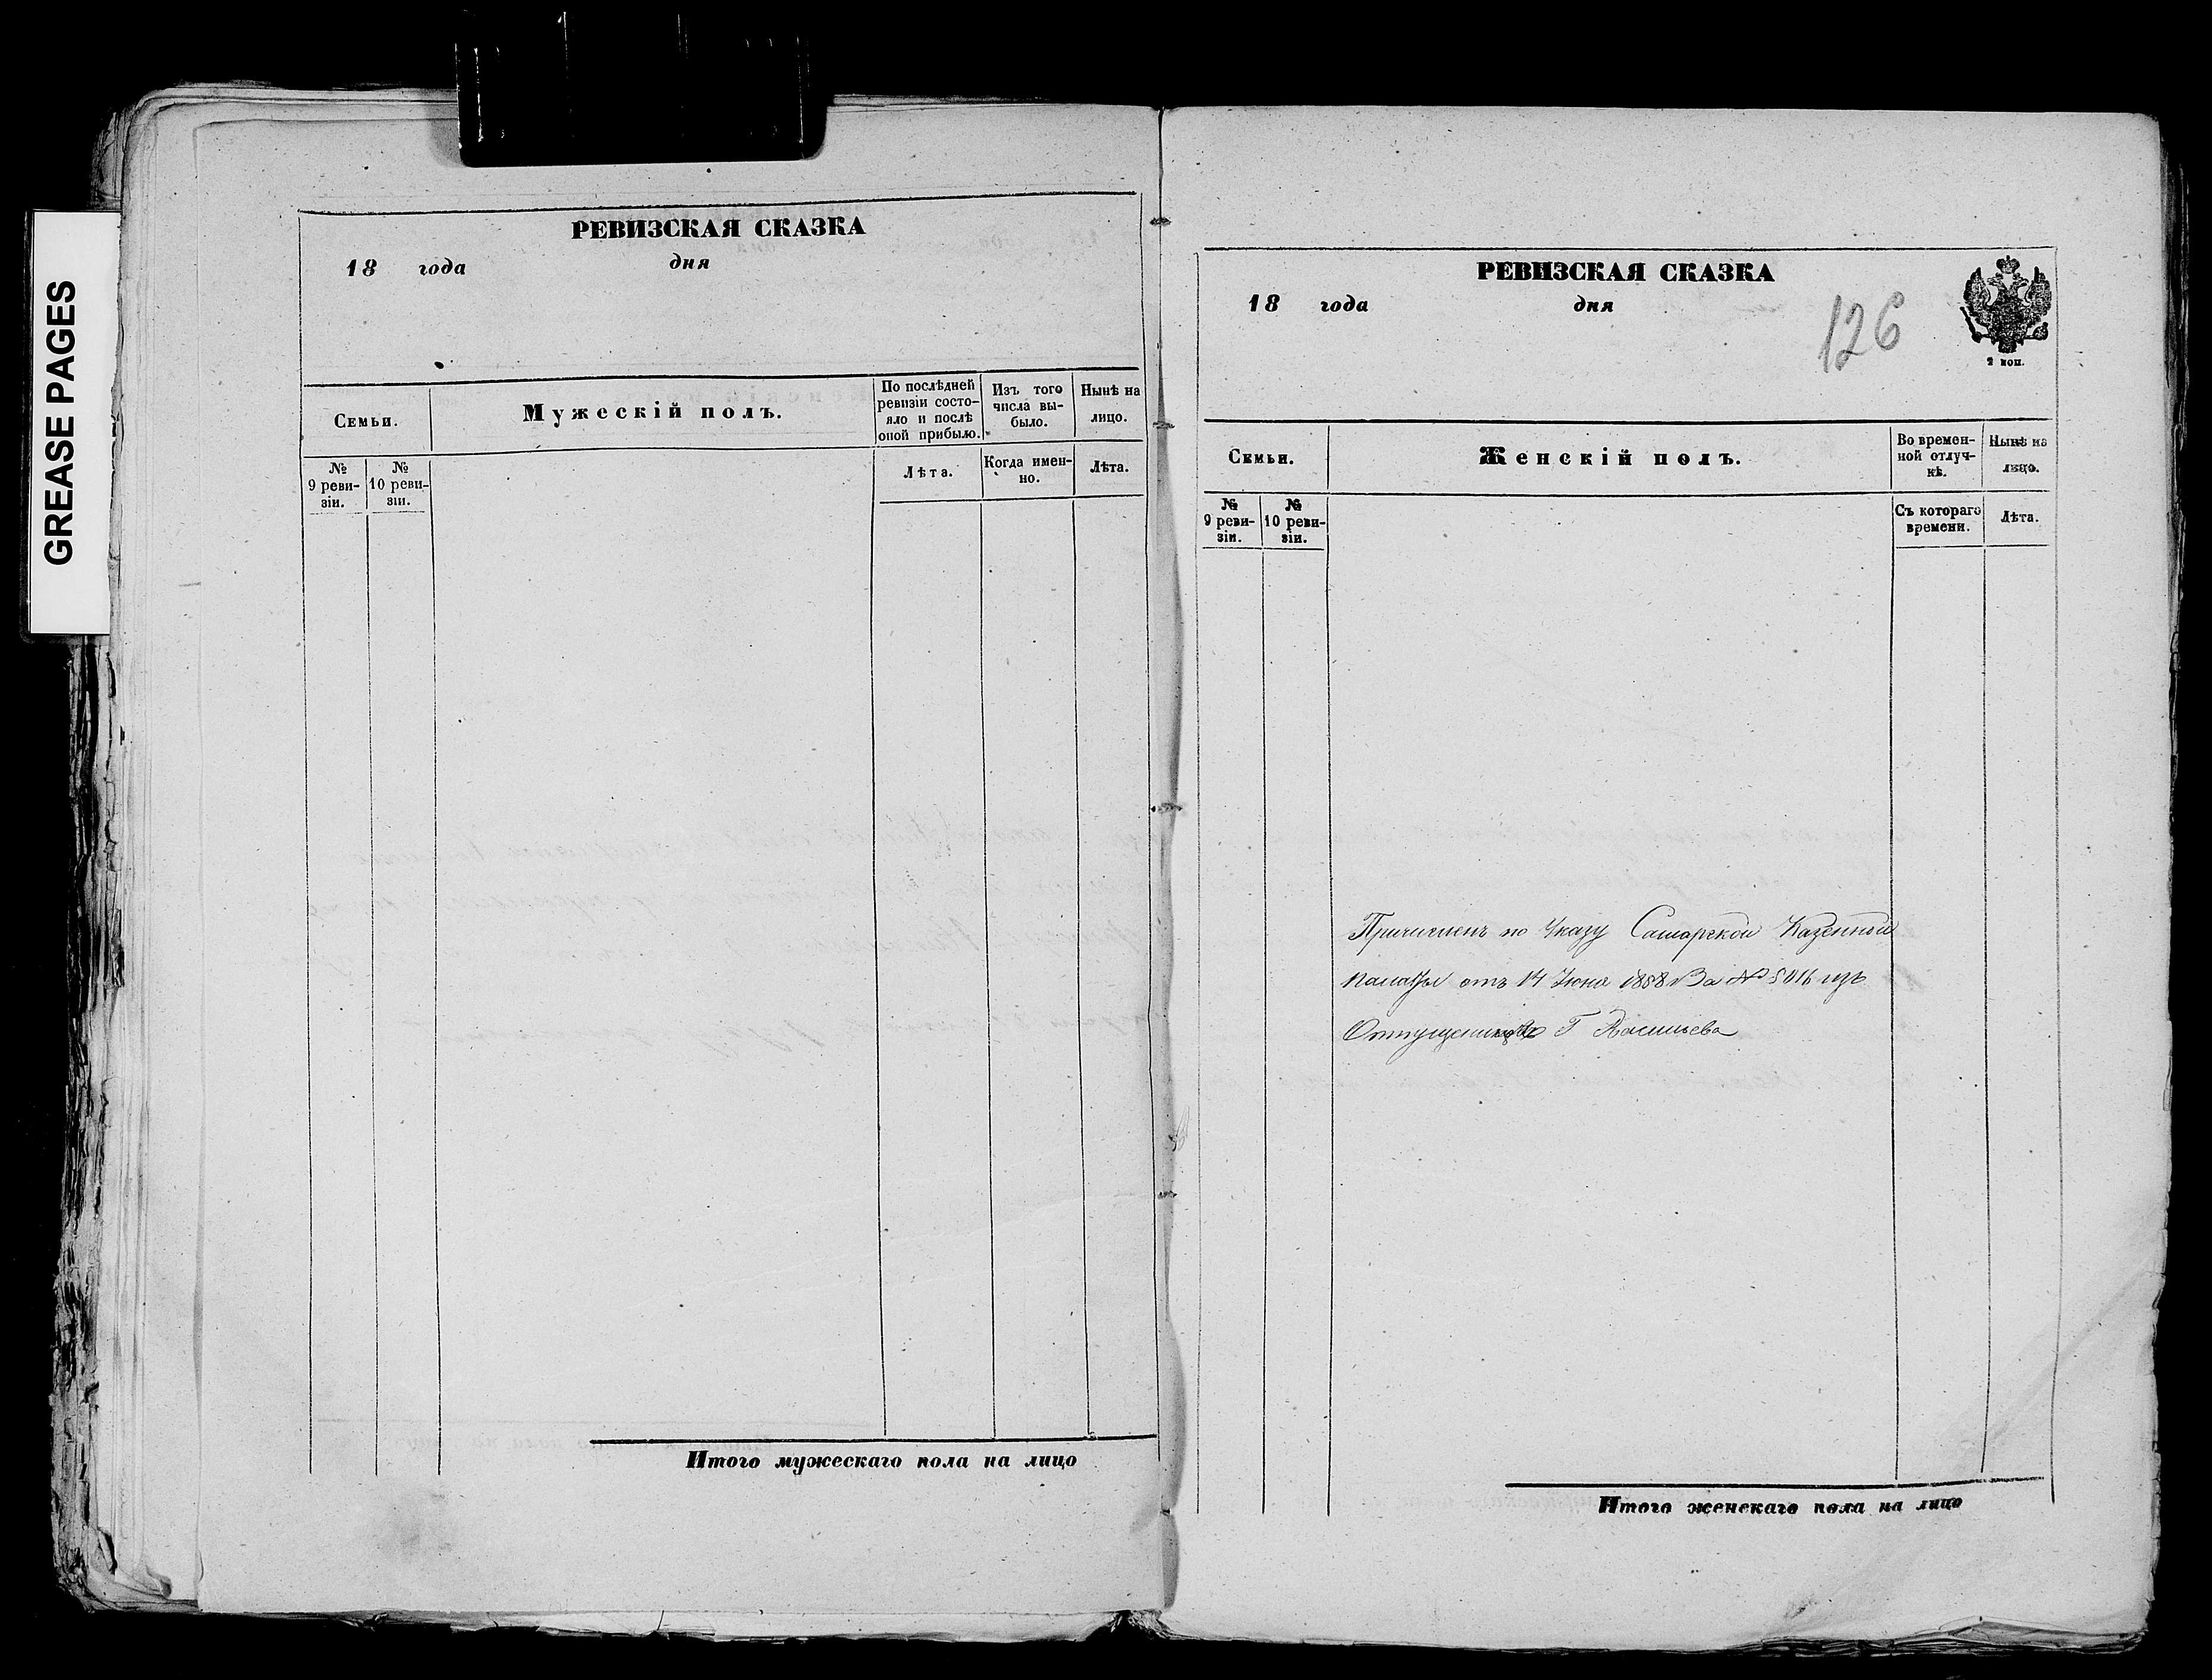 GREASE PAGES
РЕВИЗСКАЯ СКАЗКА
18 года дня
Семьи.
Мужескій полъ.
По послѣдней ревизіи состо-
яло и послѣ
оной прибыло.
Изъ того
числа вы-
было.
Нынѣ на
лицо.
№
9 реви-
зіи.
№
10 реви-
зіи.
Лѣта.
Когда имен-
но.
Лѣта.
Итого мужескаго пола на лицо
РЕВИЗСКАЯ СКАЗКА
18 года дня
126
2 коп.
Семьи.
Женскій полъ.
Во времен-
ной отлуч-
кѣ.
Нынѣ на
лицо.
№
9 реви-
зіи.
№
10 реви-
зіи.
Съ котораго
времени.
Лѣта.
Причисленъ по Указу Самарской Казенной
палаты отъ 14 Июня 1858 За № 5016 изъ
Г
Итого женскаго пола на лицо